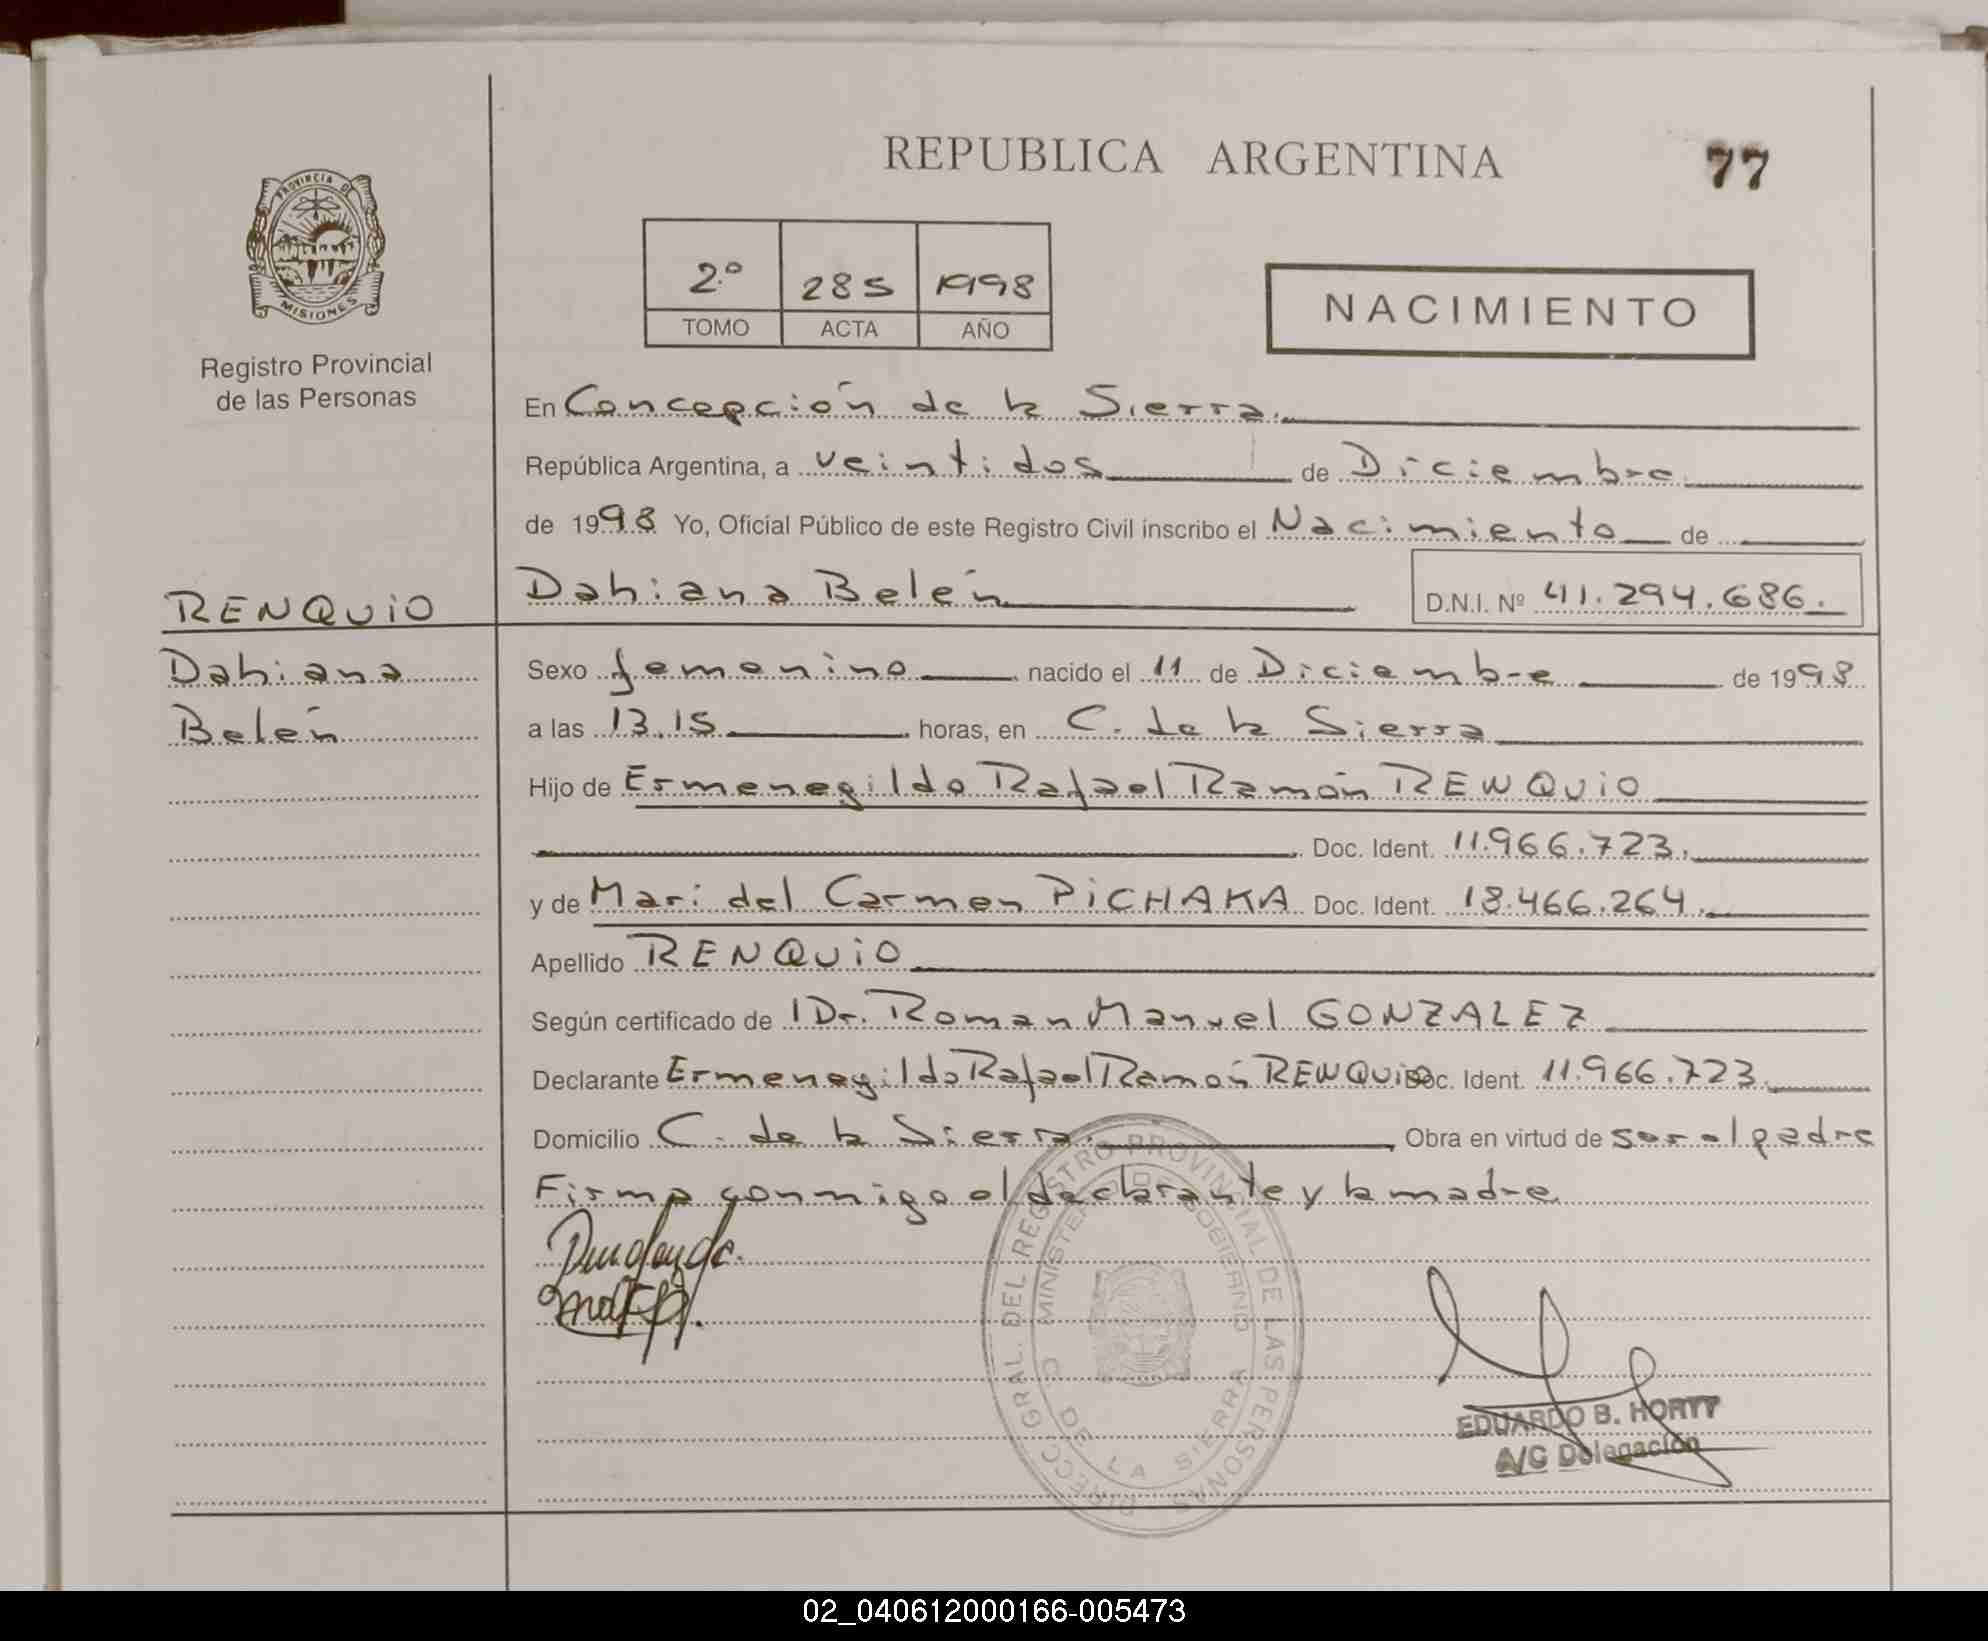 REPUBLICA ARGENTINA
77
PROVINCIA DE
MISIONES
Registro Provincial
de las Personas
2º 285 1998
TOMO ACTA AÑO
NACIMIENTO
En Concepción de la Sierra.
República Argentina, a veintidos de Diciembre
de 1998 Yo, Oficial Público de este Registro Civil inscribo el Nacimiento de
RENQUiO
Dahiana Belén D.N.I. Nº 41.294.686.
Dahiana
Belén
Sexo femenino nacido el 11 de Diciembre de 1998
a las 13.15 horas, en C. de la Sierra
Hijo de Ermenegildo Rafael Ramón RENQUiO
Doc. Ident. 11.966.723.
y de Mari del Carmen PiCHAKA Doc. Ident. 18.466.264.
Apellido RENQUiO
Según certificado de Dr. Roman Manuel GONZALEZ
Declarante Ermenegildo Rafael Ramón RENQUiO Doc. Ident. 11.966.723.
Domicilio C. de la Sierra. Obra en virtud de ser el padre
Firma conmigo el declarante y la madre
DIRECC. GRAL. DEL REGISTRO PROVINCIAL DE LAS PERSONAS
MINISTERIO DE GOBIERNO
C. DE LA SIERRA
EDUARDO B. HORTT
A/C Delegación
02_040612000166-005473